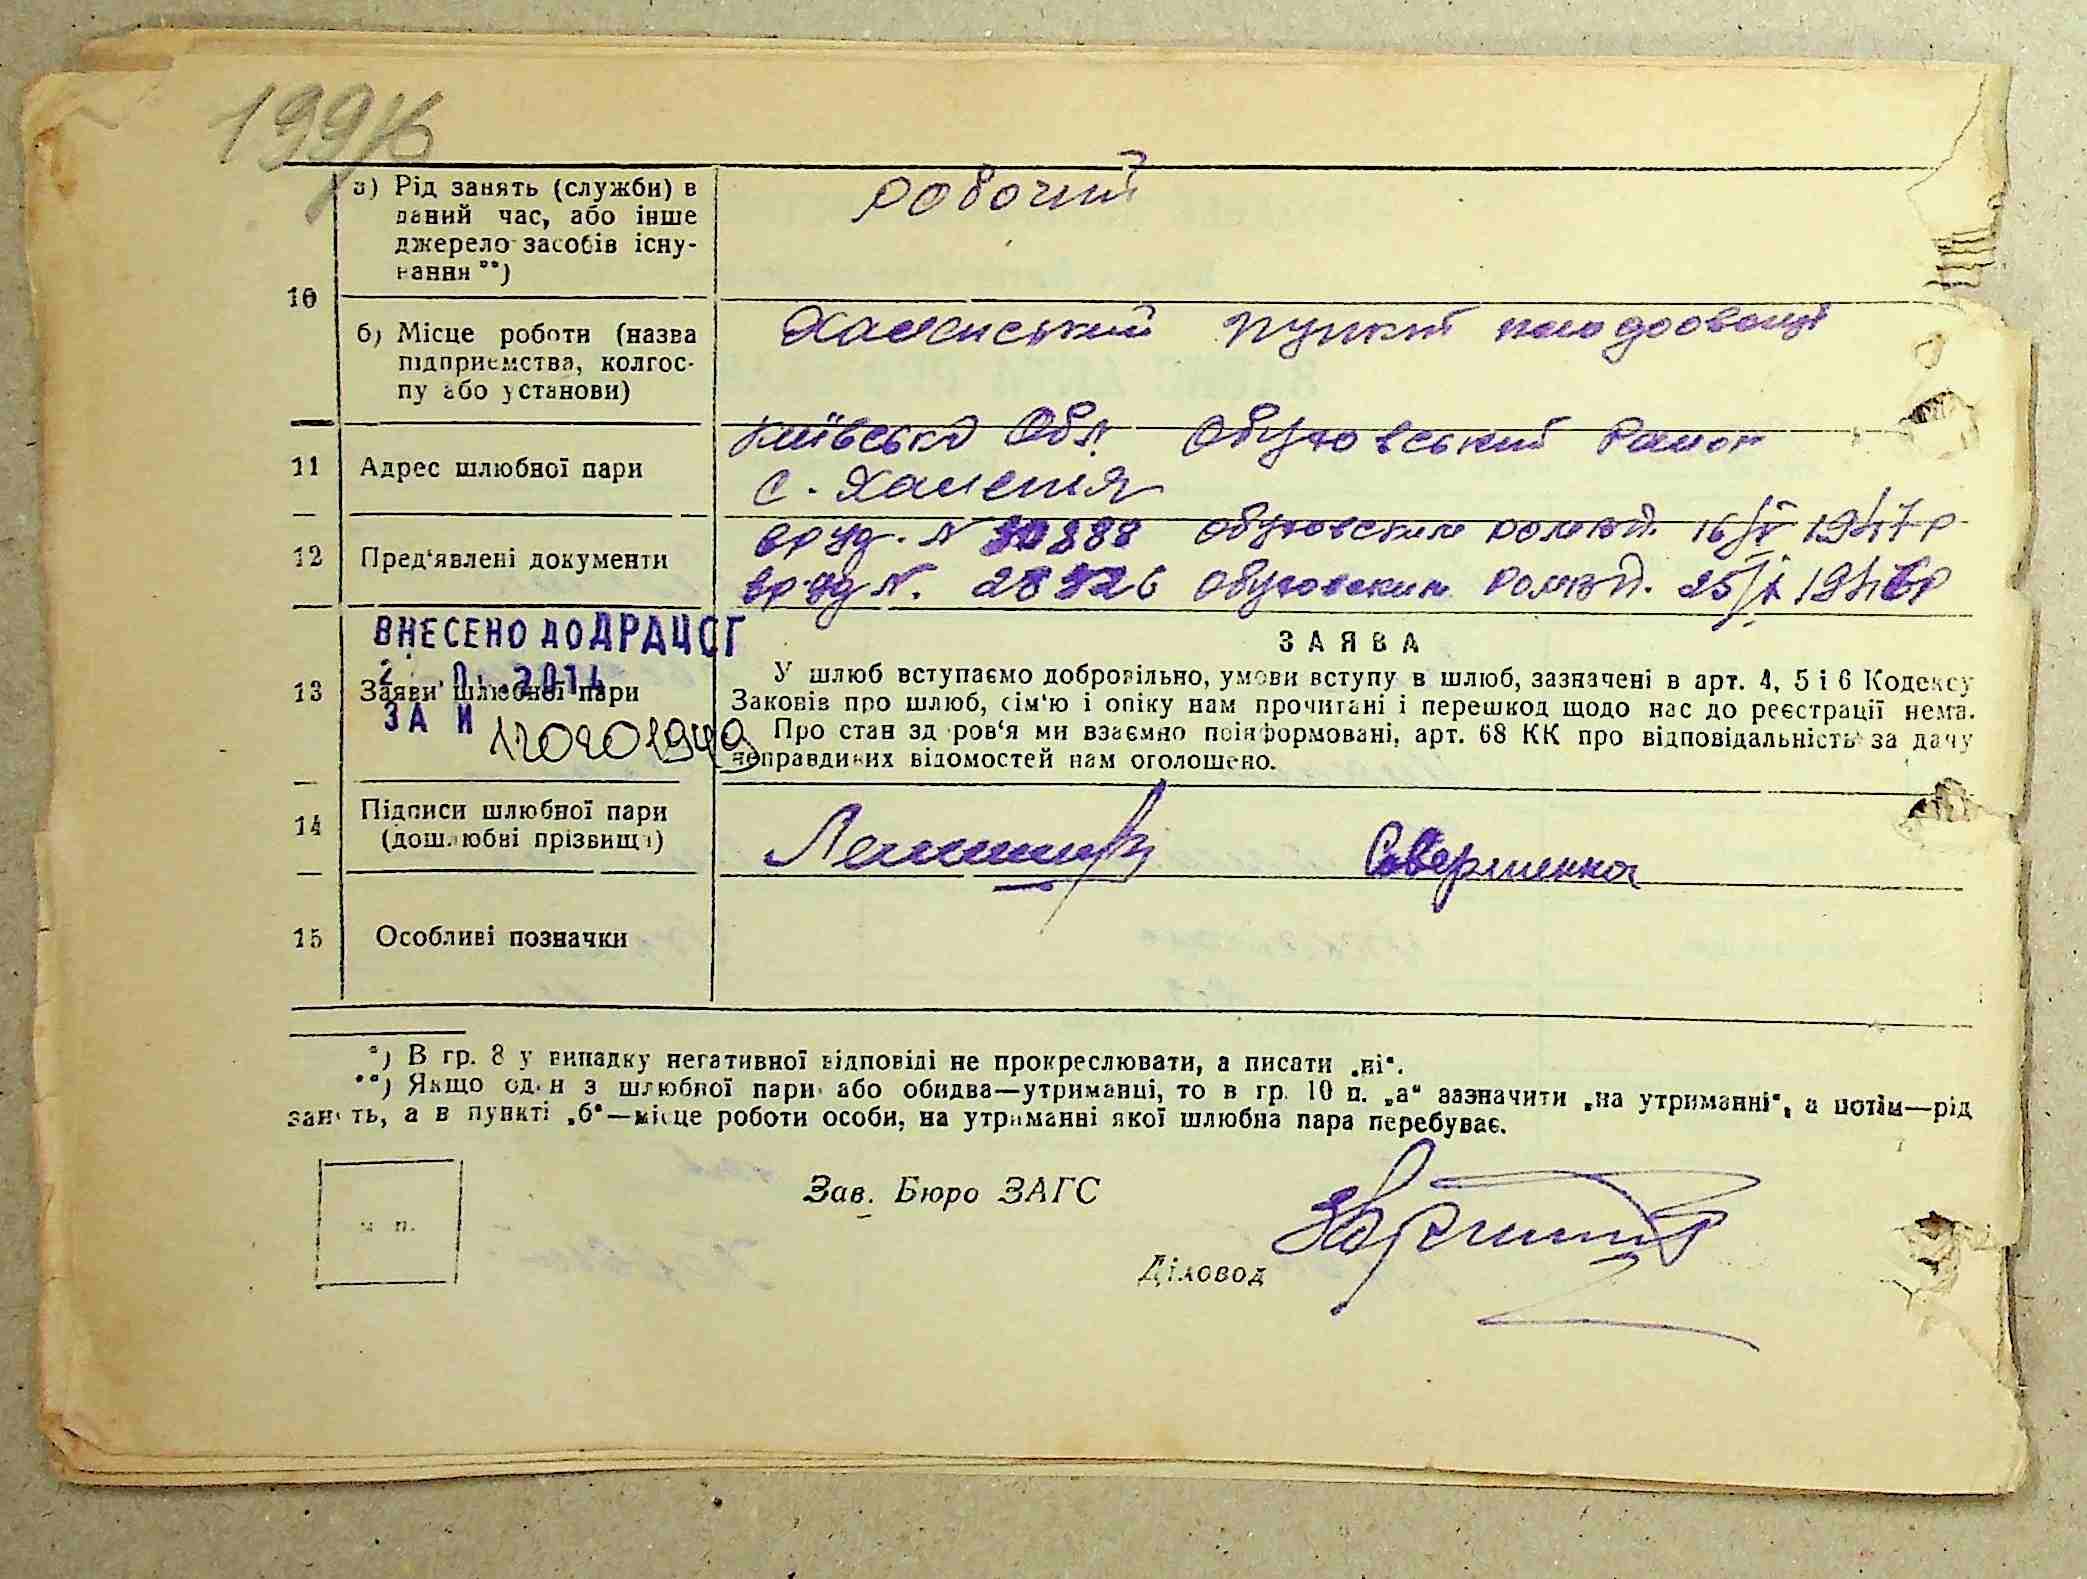 а) Рід занять (служби) в
даний час, або інше
джерело засобів існу-
вання **)
робочий
10
б) Місце роботи (назва
підприємства, колгос-
пу або установи)
пункт
11
Адрес шлюбної пари
Київська Обл. Обуховський Район
с. Халепя
12
Пред'явлені документи
вр уд. N 1947 р
вр. уд N. 28326
ВНЕСЕНО ДО ДРАЦСГ
2014
ЗА И
120201949
13
Заяви шлюбної пари
ЗАЯВА
У шлюб вступаємо добровільно, умови вступу в шлюб, зазначені в арт. 4, 5 і 6 Кодексу
Законів про шлюб, сім'ю і опіку нам прочитані і перешкод щодо нас до реєстрації нема.
Про стан здоров'я ми взаємно поінформовані, арт. 68 КК про відповідальність за дачу
неправдивих відомостей нам оголошено.
14
Підписи шлюбної пари
(дошлюбні прізвища)
Совершенна
15
Особливі позначки
*) В гр. 8 у випадку негативної відповіді не прокреслювати, а писати „ні“.
**) Якщо один з шлюбної пари або обидва—утриманці, то в гр. 10 п. „а“ зазначити „на утриманні“, а потім—рід
занять, а в пункті „б“—місце роботи особи, на утриманні якої шлюбна пара перебуває.
м п.
Зав. Бюро ЗАГС
Діловод